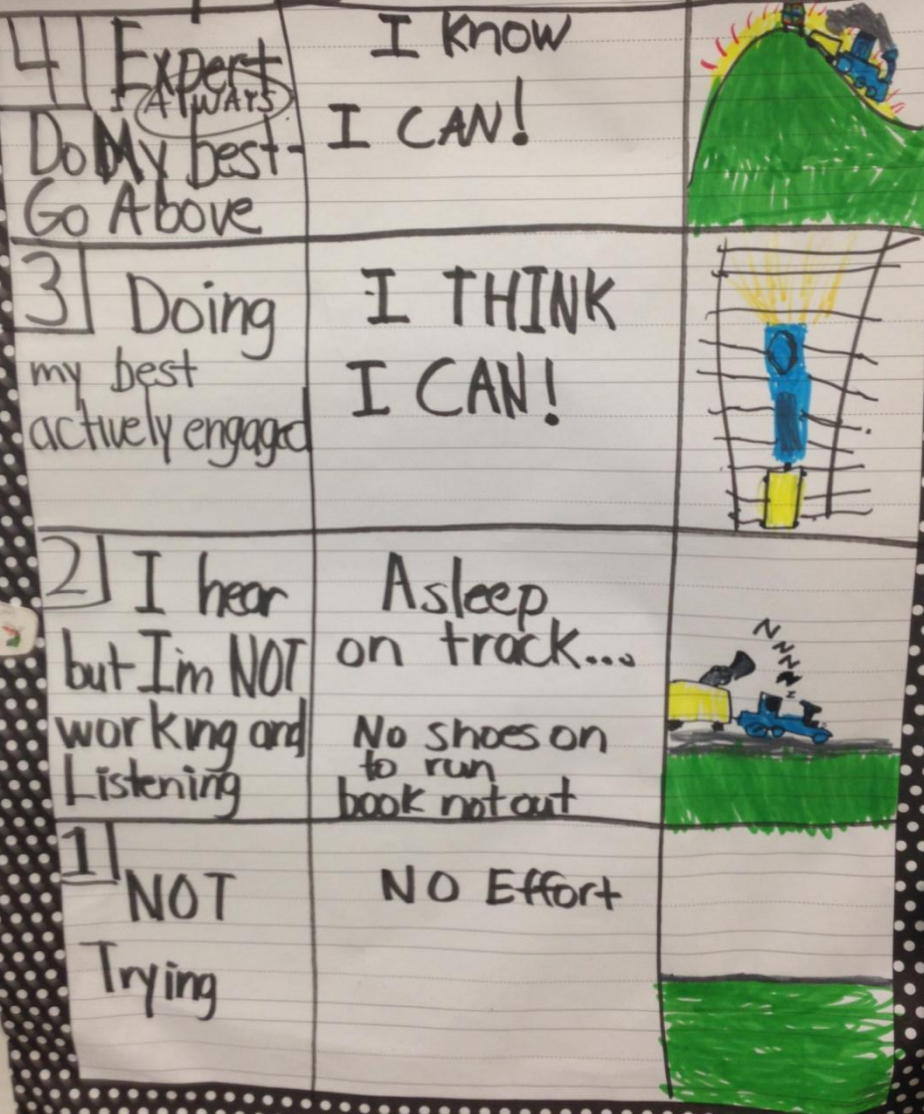 4 Expert
AlWAYS
Do My best-
Go Above
I know
I CAN!
3 Doing
my best
actively engaged
I THINK
I CAN!
2 I hear
but I'm NOT
working and
Listening
Asleep
on track...
No shoes on
to run
book not out
N N N N z
1 NOT
Trying
NO Effort